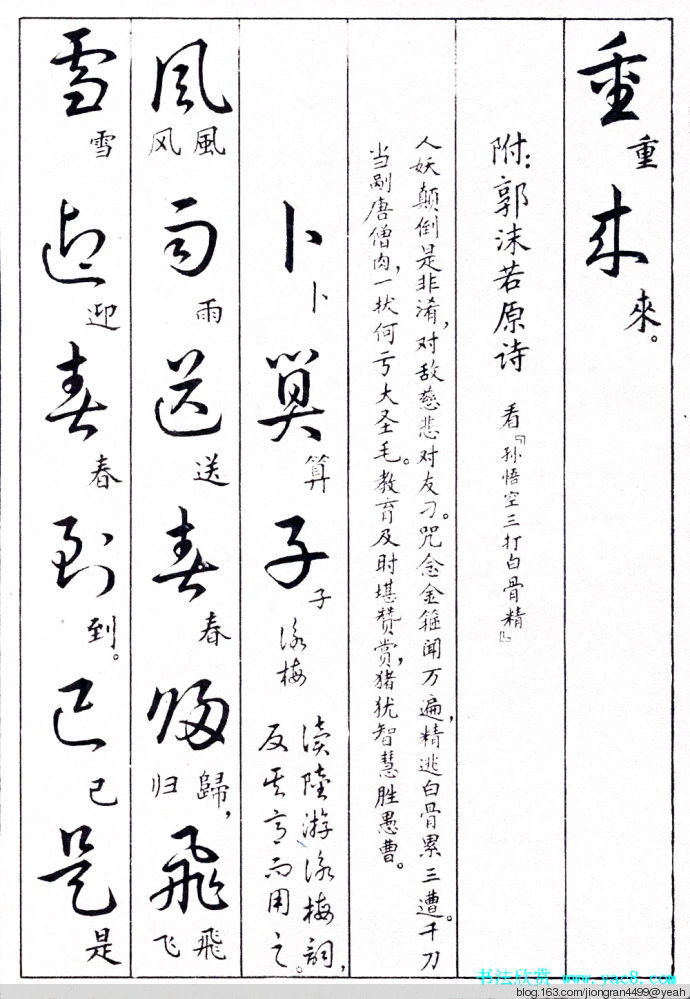 重重来來。
附：郭沫若原诗 看『孙悟空三打白骨精』
人妖颠倒是非淆，对敌慈悲对友刁。咒念金箍闻万遍，精逃白骨累三遭。千刀
当剐唐僧肉，一拔何亏大圣毛。教育及时堪赞赏，猪犹智慧胜愚曹。
卜卜算算子子 詠梅
读陸游詠梅詞，
反其意而用之。
風風风雨雨送送春春歸歸归，飛飛飞
雪雪迎迎春春到到。已已是是
书法欣赏 www.yac8.com
blog.163.com/jiongran4499@yeah